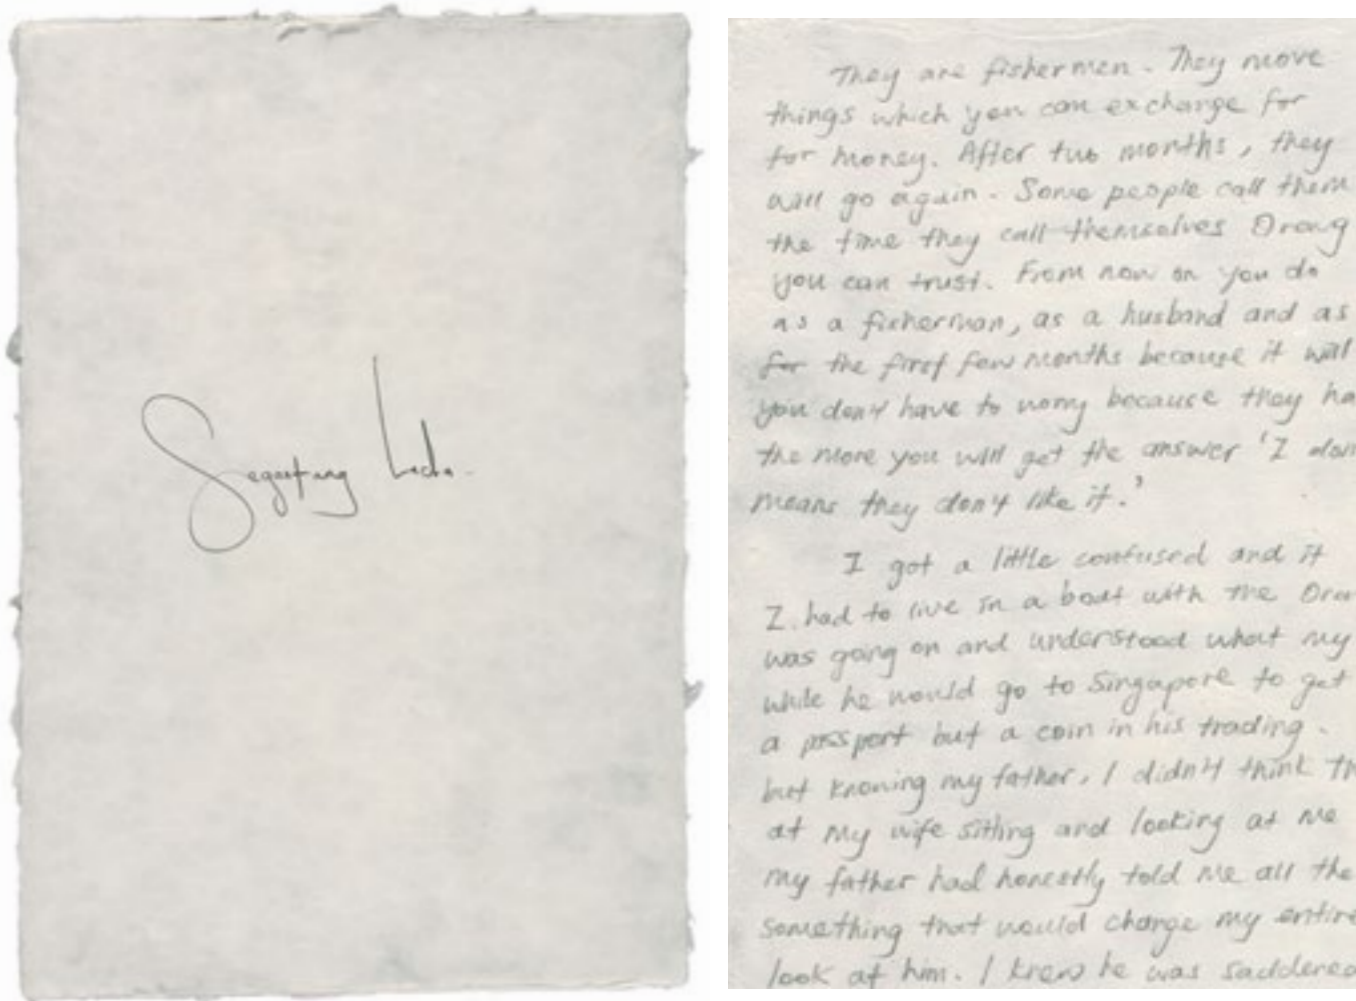 Segantang Lada.
They are fishermen. They move
things which you can exchange for
for money. After two months, they
will go again. Some people call them
the time they call themselves Orang
you can trust. From now on you do
as a fisherman, as a husband and as
for the first few months because it will
you don't have to worry because they ha
the more you will get the answer 'I don
means they don't like it.'
I got a little confused and it
I had to live in a boat with the Oran
was going on and understood what my
while he would go to Singapore to get
a passport but a coin in his trading.
but knowing my father, I didn't think th
at my wife sitting and looking at me
my father had honestly told me all the
something that would change my entire
look at him. I knew he was saddened